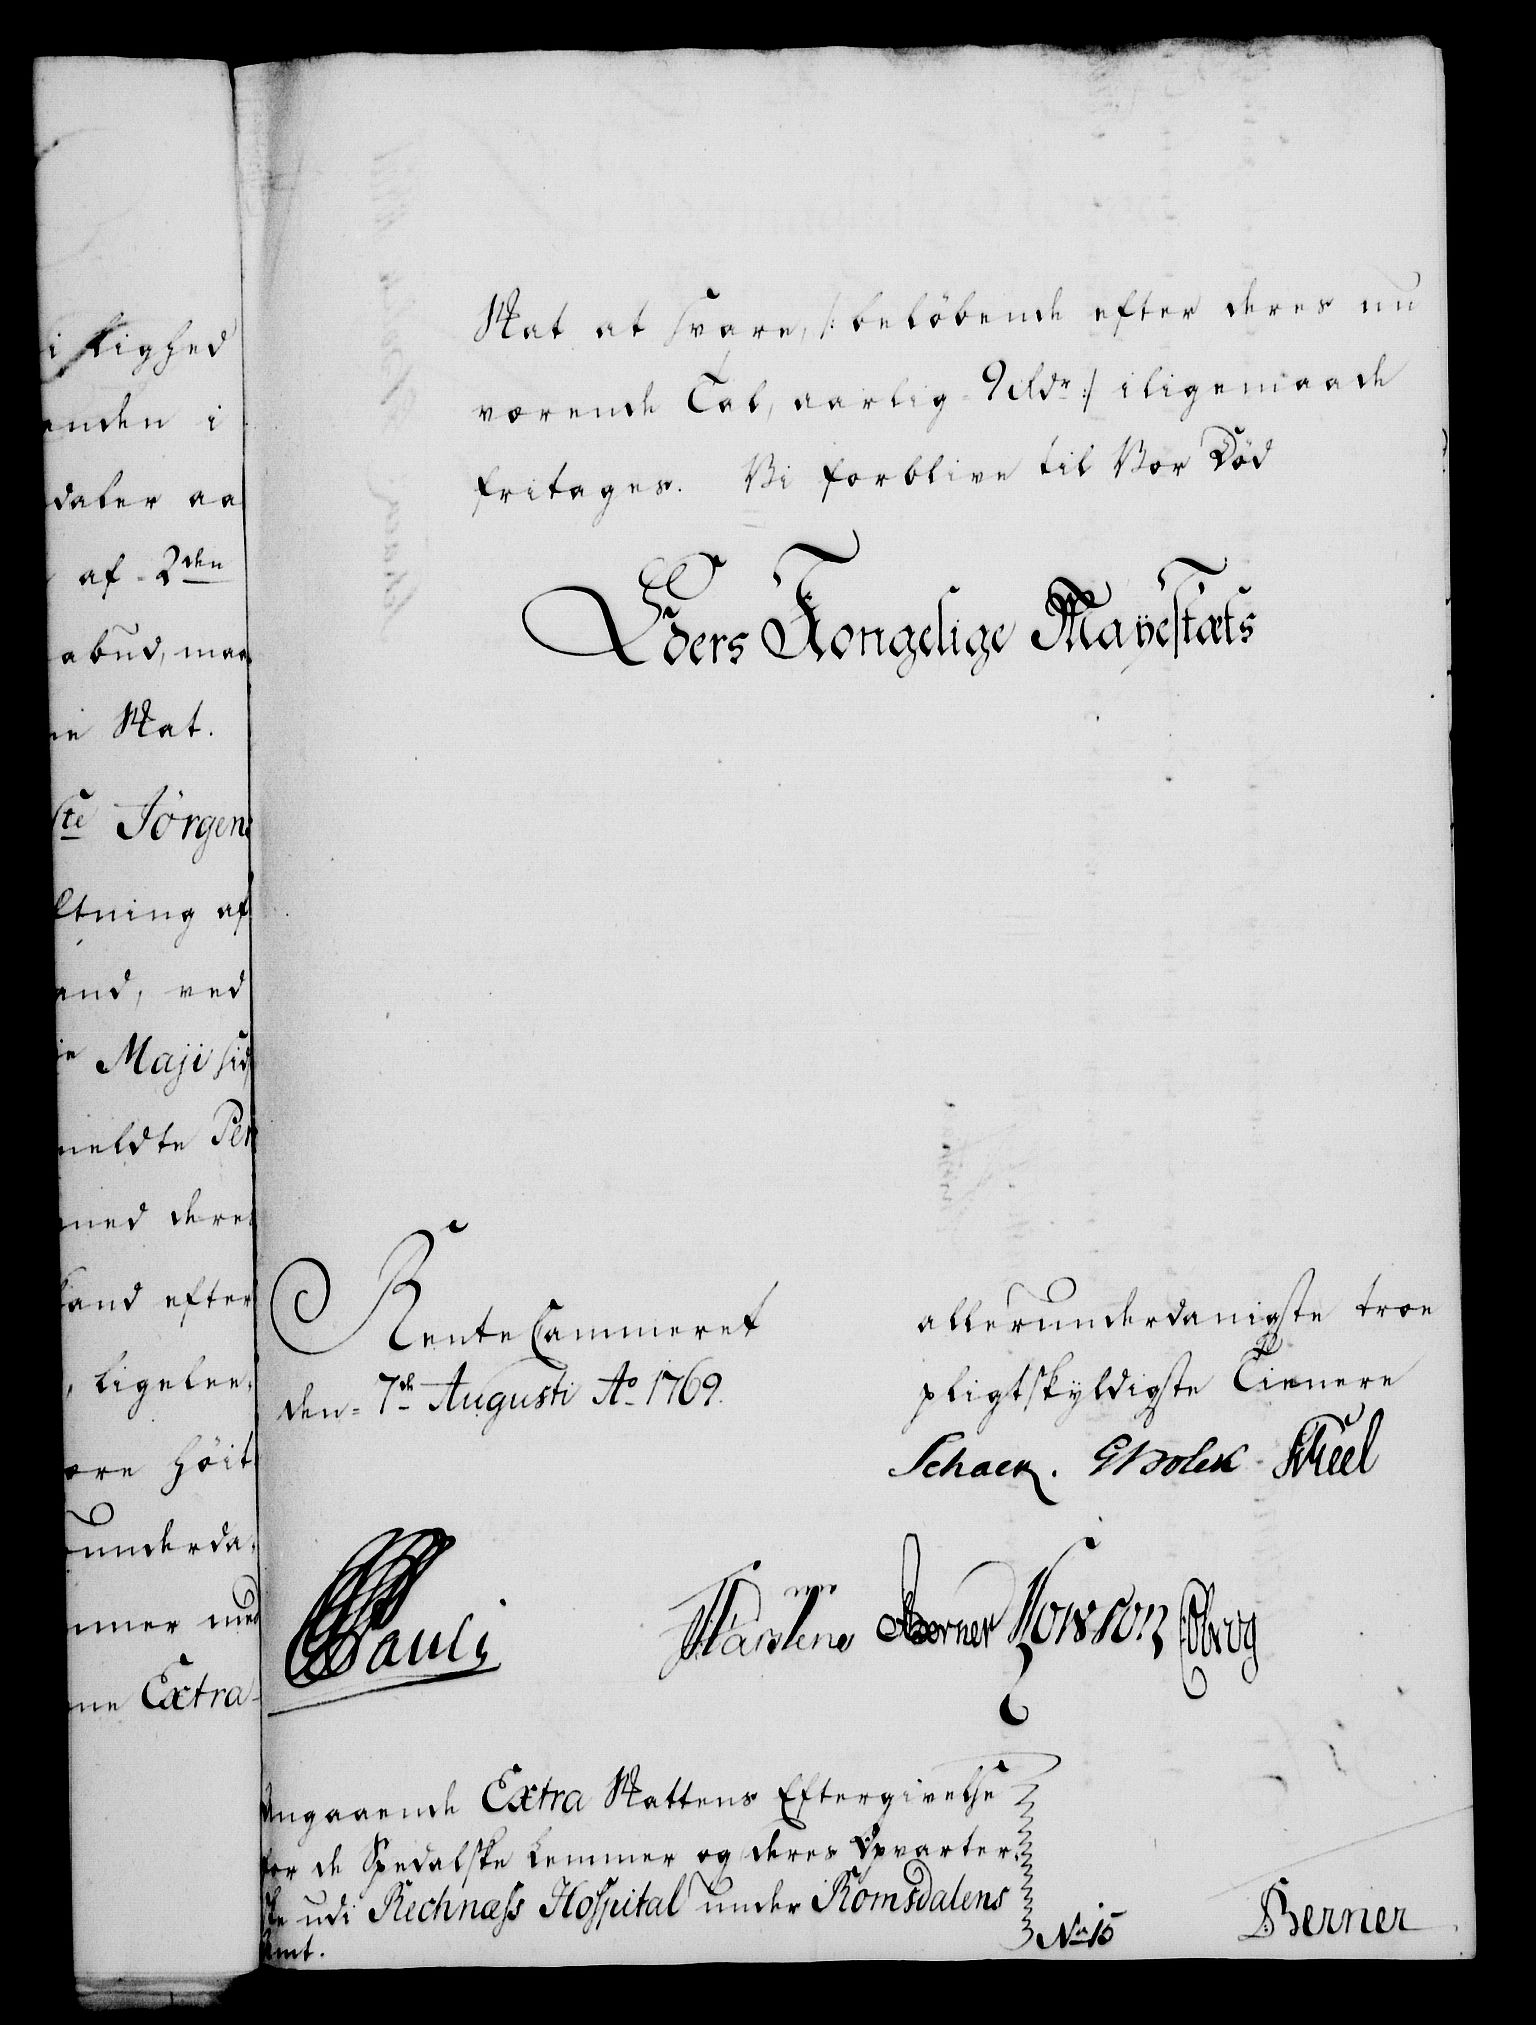 i Lighed
anden i
daler aa
af 2den
abud, maa
ie Skat.
ste Jörgens
ltning af
and, ved
ie Maji sid
meldte Per
med deres
land efter
, ligelee-
ære höit
runderda-
mmer med
ne Extra-
Skat at svare, /: belöbende efter deres nu
værende Tal, aarlig 9 Rdr :/ iligemaade
fritages. Vi forblive til Vor Död
Eders Kongelige Mayestæts
Rente Cammeret
den 7de Augusti Ao 1769.
allerunderdanigste troe
pligtskyldigste Tienere
Schack. GHolck Skeel
Pauli
Karstens Berner Kowson Eberg
Angaaende Extra Skattens Eftergivelse
for de Spedalske Lemmer og deres Opvarter-
ske udi Rechnæss Hospital under Romsdalens
Amt.
No 15
Berner